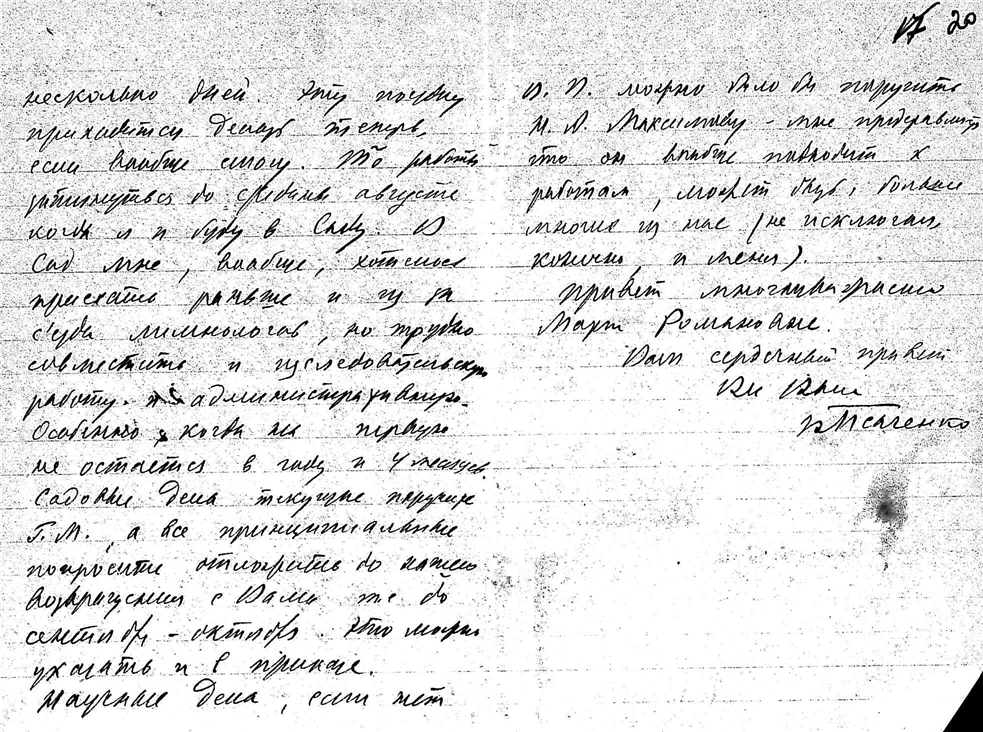 17 20
несколько дней. Эту поездку
приходится делать теперь,
если вообще смогу. То работы
затянуться до средины августа
когда я и буду в Саду. В
Сад мне, вообще, хотелось
приехать раньше и из за
с'езда лимнологов, но трудно
совместить и исследовательскую
работу и административную.
Особенно когда на первую
не остается в году и 4 месяцев
Садовые дела текущие поручите
Г.М., а все принципиальные
попросите отложить до нашего
возвращения с Вами же до
сентября - октября. Это можно
указать и в приказе.
Научные дела, если нет
В. П. можно было бы поручить
Н. А. Максимову - мне представляется
что он вообще подходит к
работам, может быть, больше
многие из нас (не исключая,
конечно, и меня).
Привет многоуважаемой
Марии Романовне.
Вам сердечный привет
Ваш
Б Исаченко